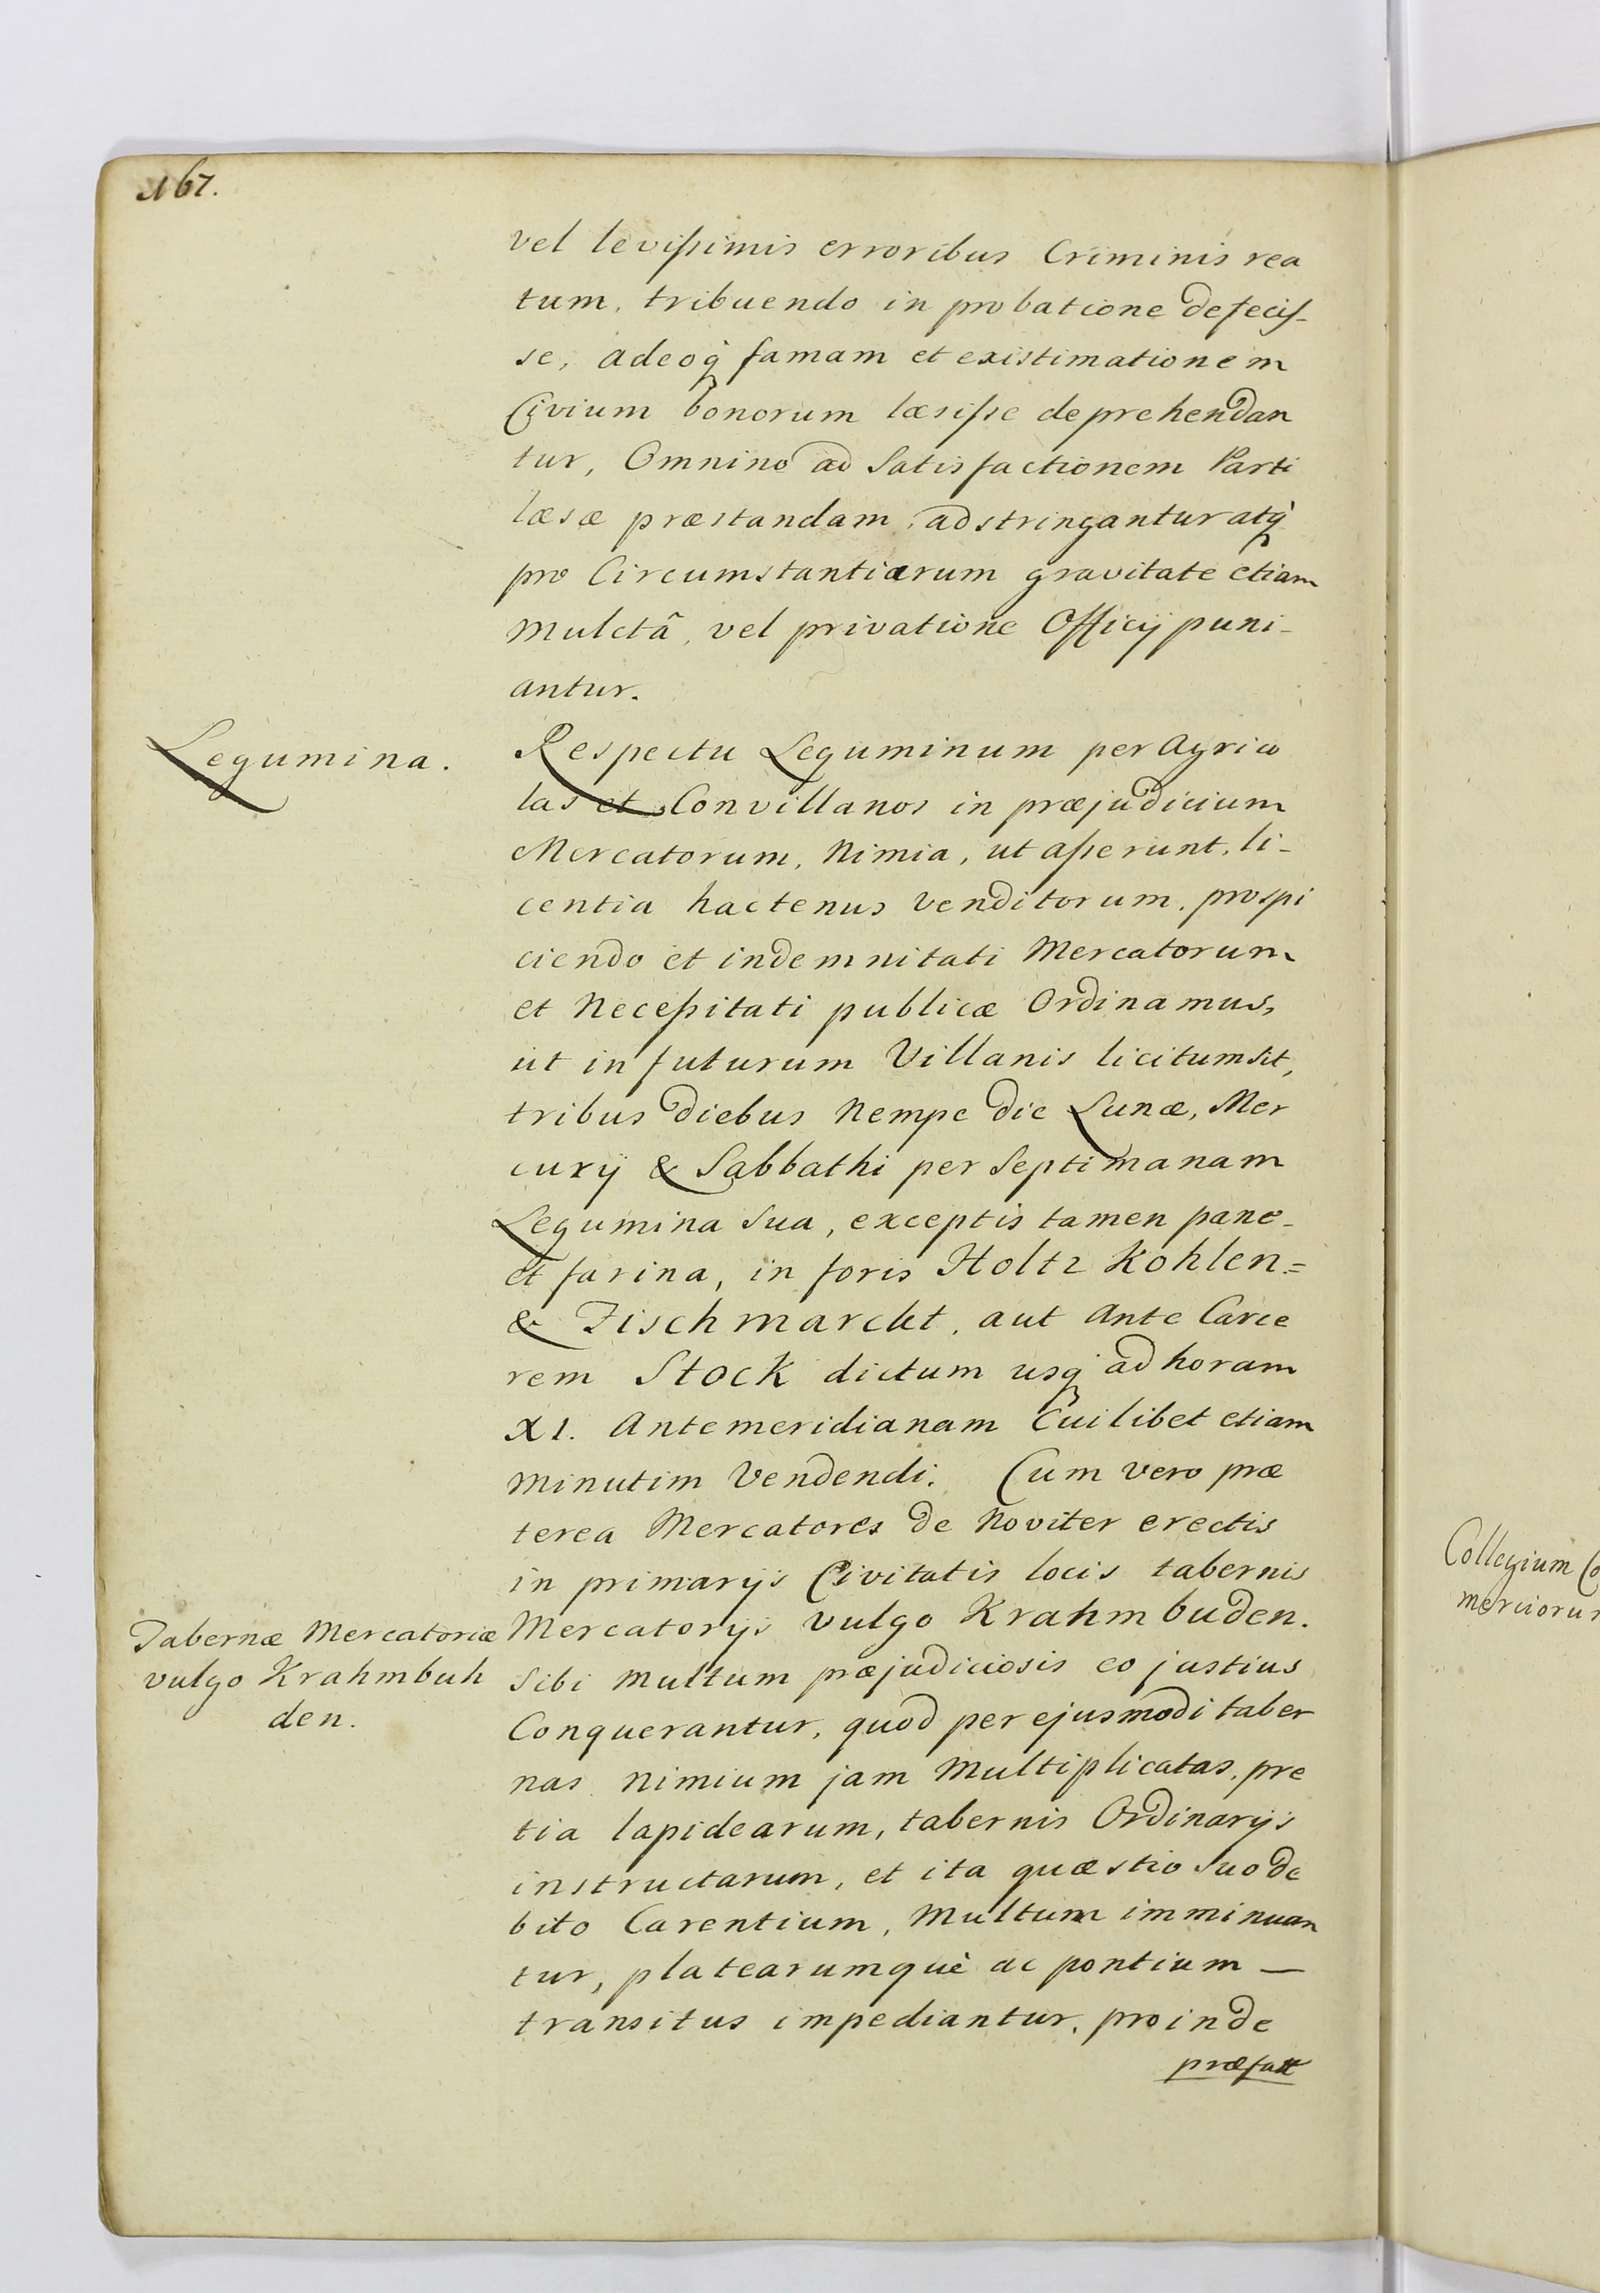 167.
vel levissimis erroribus Criminis rea
tum, tribuendo in probatione defecis-
se, adeoq́ famam et existimationem
Civium bonorum læsisse deprehendan
tur, Omnino ad Satisfactionem Parti
læsæ præstandam, adstringantur atq́
pro Circumstantiarum gravitate etiam
Mulctâ, vel privatione Officÿ puni-
antur.
Legumina.
Respectu Leguminum per Agrico
las et Convillanos in præjudicium
Mercatorum, Nimia, ut asserunt, li-
centia hactenus Venditorum, prospi
ciendo et indemnitati Mercatorum
et Necessitati publicæ Ordinamus,
ut in futurum Villanis licitum sit,
tribus Diebus Nempe Die Lunæ, Mer
curÿ & Sabbathi per Septimanam
Legumina Sua, exceptis tamen pane-
et farina, in foris Holtz Kohlen=
& Fischmarckt, aut Ante Carce
rem Stock dictum usq́ ad horam
XI. Antemeridianam Cuilibet etiam
Minutim Vendendi. Cum vero præ
terea Mercatores De Noviter erectis
in primarÿs Civitatis locis tabernis
Mercatorÿs vulgo Krahmbuden.
Tabernæ Mercatoriæ
vulgo Krahmbuh
den.
Sibi Multum præjudiciosis eo justius
Conquerantur, quod per ejusmodi taber
nas Nimium jam Multiplicatas, pre
tia lapidearum, tabernis Ordinarÿs
instructarum, et ita quæstio suo De
bito Carentium, Multum imminuan
tur, platearumquè ac pontium —
transitus impediantur, proinde
præfatt
Collegium Co
merciorum